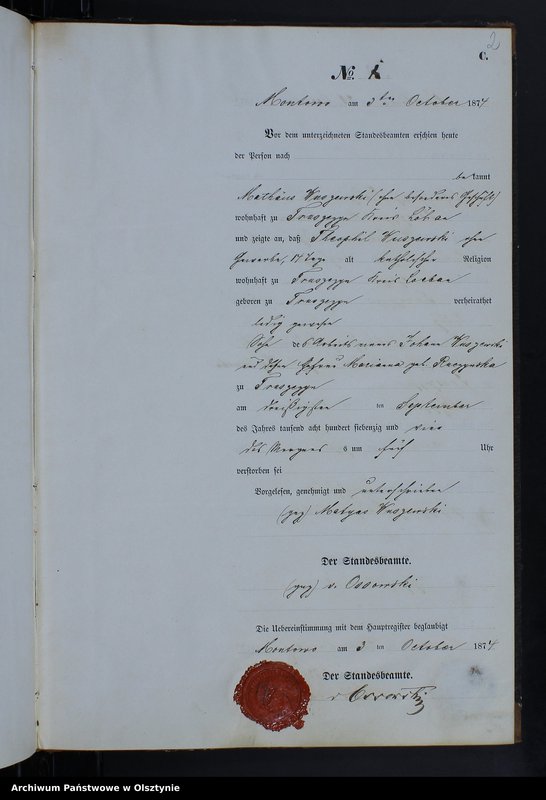 2
C.
No. 1
Montowo am 3ten October 1874
Vor dem unterzeichneten Standesbeamten erschien heute
der Person nach
bekannt
Mathäus Wuszewski (ohne besonderes Geschäft)
wohnhaft zu Kreis Löbau
und zeigte an, daß Theophil Wuszewski ohne
Gewerbe, 17 Tage alt katholischer Religion
wohnhaft zu Kreis Loebau
geboren zu verheirathet
ledig gewesen
Sohn des Arbeitsmanns Johann Wuszewski
und dessen Ehefrau Marianna geb.
zu
am dreißigsten ten September
des Jahres tausend acht hundert siebenzig und vier
des Morgens um fünf Uhr
verstorben sei
Vorgelesen, genehmigt und unterschrieben
(gez) Matyas Wuszewski
Der Standesbeamte.
(gez) v. Ossowski
Die Uebereinstimmung mit dem Hauptregister beglaubigt
Montowo am 3 ten October 1874.
Der Standesbeamte.
v Ossowski
Archiwum Państwowe w Olsztynie